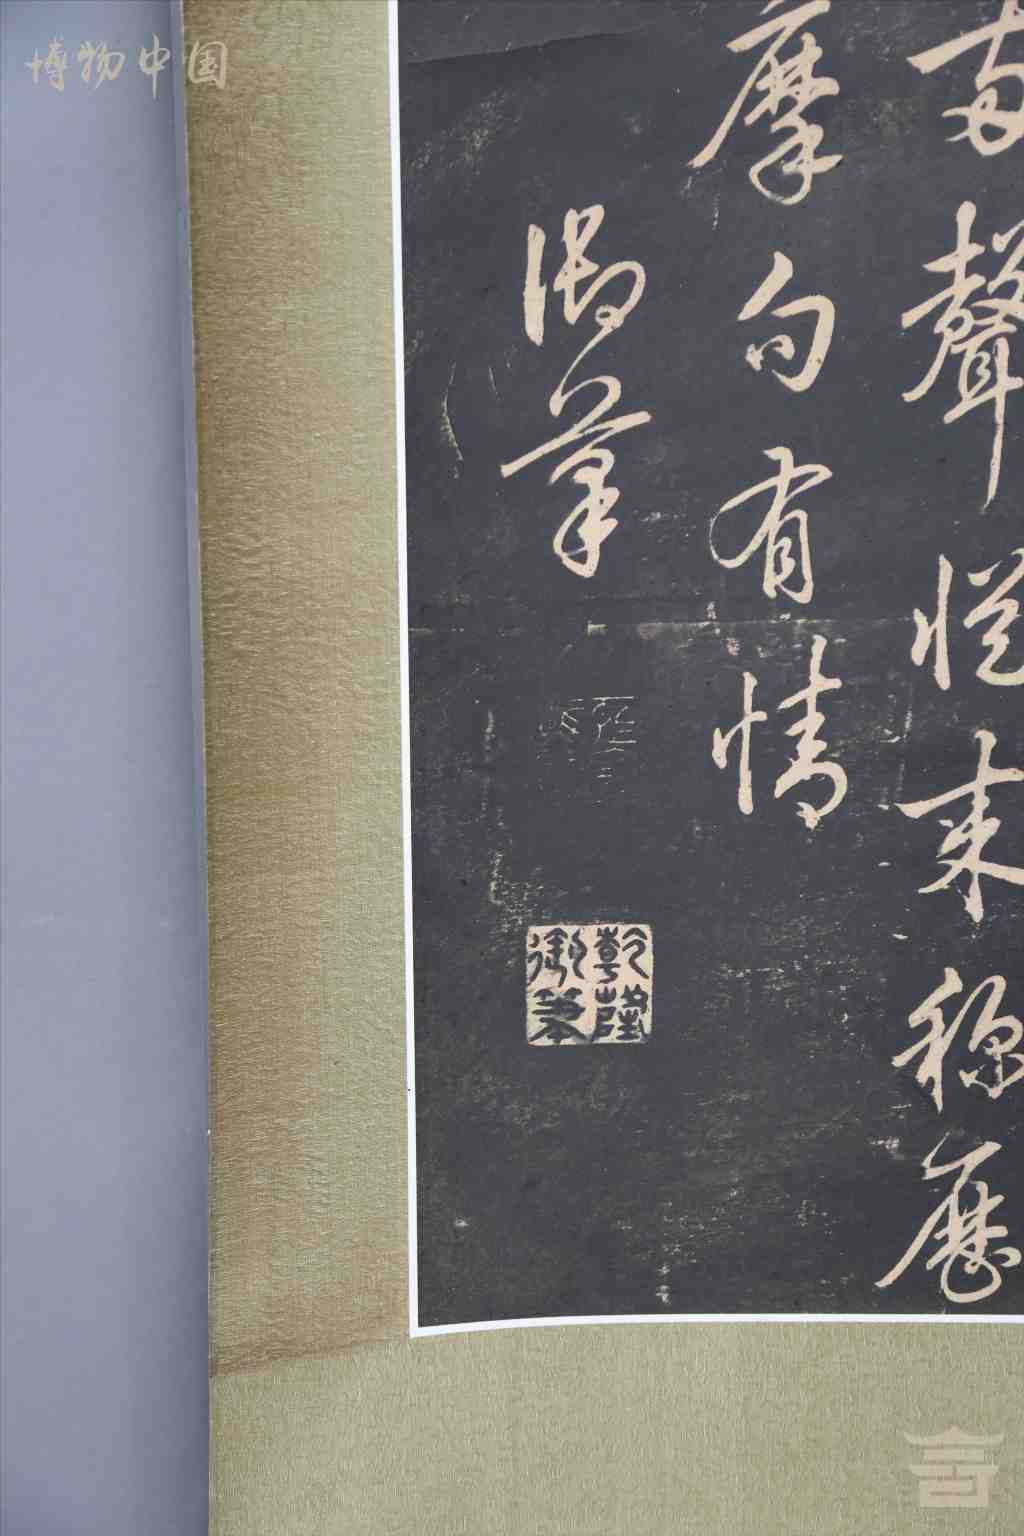 博物中国
聲從来
摩句有情
御筆
乾隆御筆